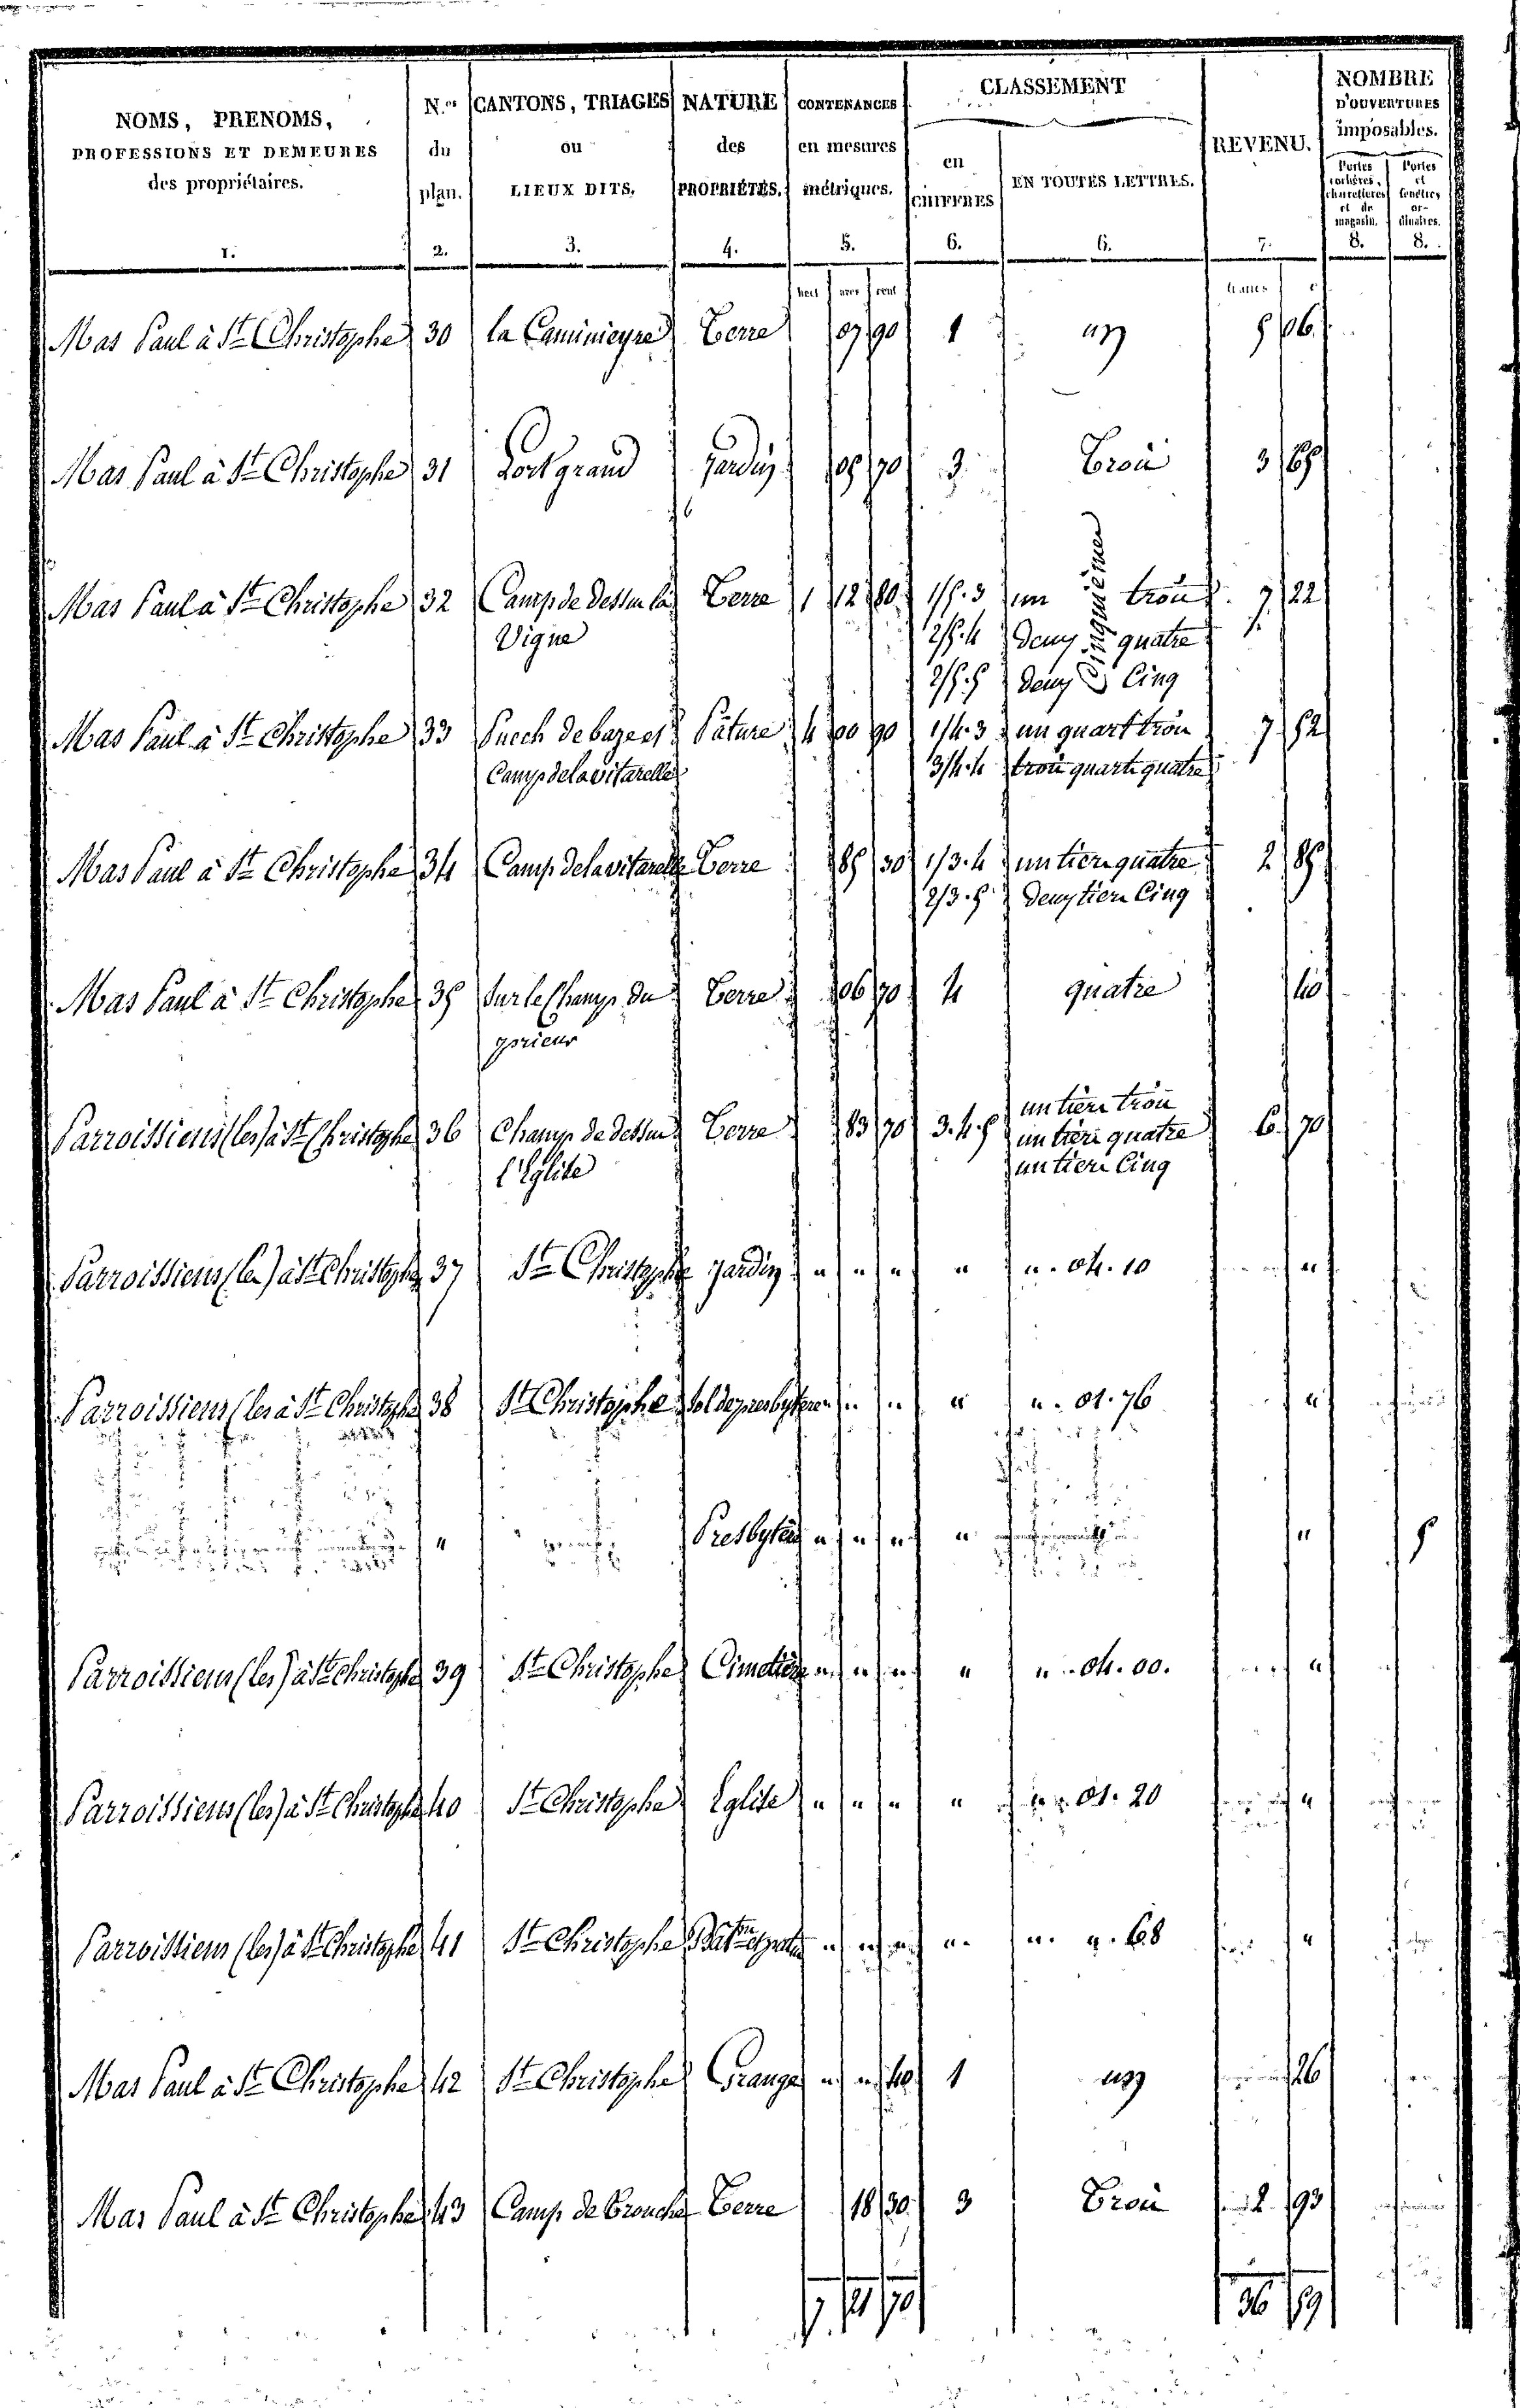 NOMS, PRENOMS,
PROFESSIONS ET DEMEURES
des propriétaires.
1.
N.os
du
plan.
2.
CANTONS, TRIAGES
ou
LIEUX DITS.
3.
NATURE
des
PROPRIÉTÉS.
4.
CONTENANCES
en mesures
métriques.
5.
CLASSEMENT
en
CHIFFRES
6.
EN TOUTES LETTRES.
6.
REVENU.
7.
NOMBRE
D'OUVERTURES
imposables.
Portes cochères, charretières et de magasin.
8.
Portes et fenêtres ordinaires.
8.
hect ares cent
francs c
Mas Paul à St Christophe 30 la Caminieyre Terre 07 90 1 un 5 06
Mas Paul à St Christophe 31 Lort grand jardin 05 70 3 trois 3 65
Mas Paul à St Christophe 32 Camp de dessus la Terre 1 12 80 1/5.3 un cinquièmes trois 7 22
Vigne 2/5.4 deux quatre
2/5.5 deux Cinq
Mas Paul à St Christophe 33 Puech de Pature 4 00 90 1/4.3 un quart trois 7 52
Camp de la vitarelle 3/4.4 trois quarts quatre
Mas Paul à St Christophe 34 Camp de la vitarelle Terre 85 30 1/3.4 un tiers quatre 2 85
2/3.5 deux tiers Cinq
Mas Paul à St Christophe 35 Sur le Champ du Terre 06 70 4 quatre 40
prieur
Parroissiens (les) à St Christophe 36 Champ de dessus Terre 83 70 3.4.5 un tiers trois 6 70
l'Eglise un tiers quatre
un tiers Cinq
Parroissiens (les) à St Christophe 37 St Christophe jardin " " " " ". 04. 10 "
Parroissiens (les à St Christophe 38 St Christophe Sol de presbytere " " " ". 01. 76 "
" Presbytère " " " " " 5
Parroissiens (les) à St Christophe 39 St Christophe Cimetière " " " " ". 04. 00. "
Parroissiens (les) à St Christophe 40 St Christophe Eglise " " " " 01. 20 "
Parroissiens (les) à St Christophe 41 St Christophe " " " ". ". ". 68 "
Mas Paul à St Christophe 42 St Christophe Grange " " 40 1 un 26
Mas Paul à St Christophe 43 Camp de Terre 18 30 3 trois 2 93
7 21 70 36 59